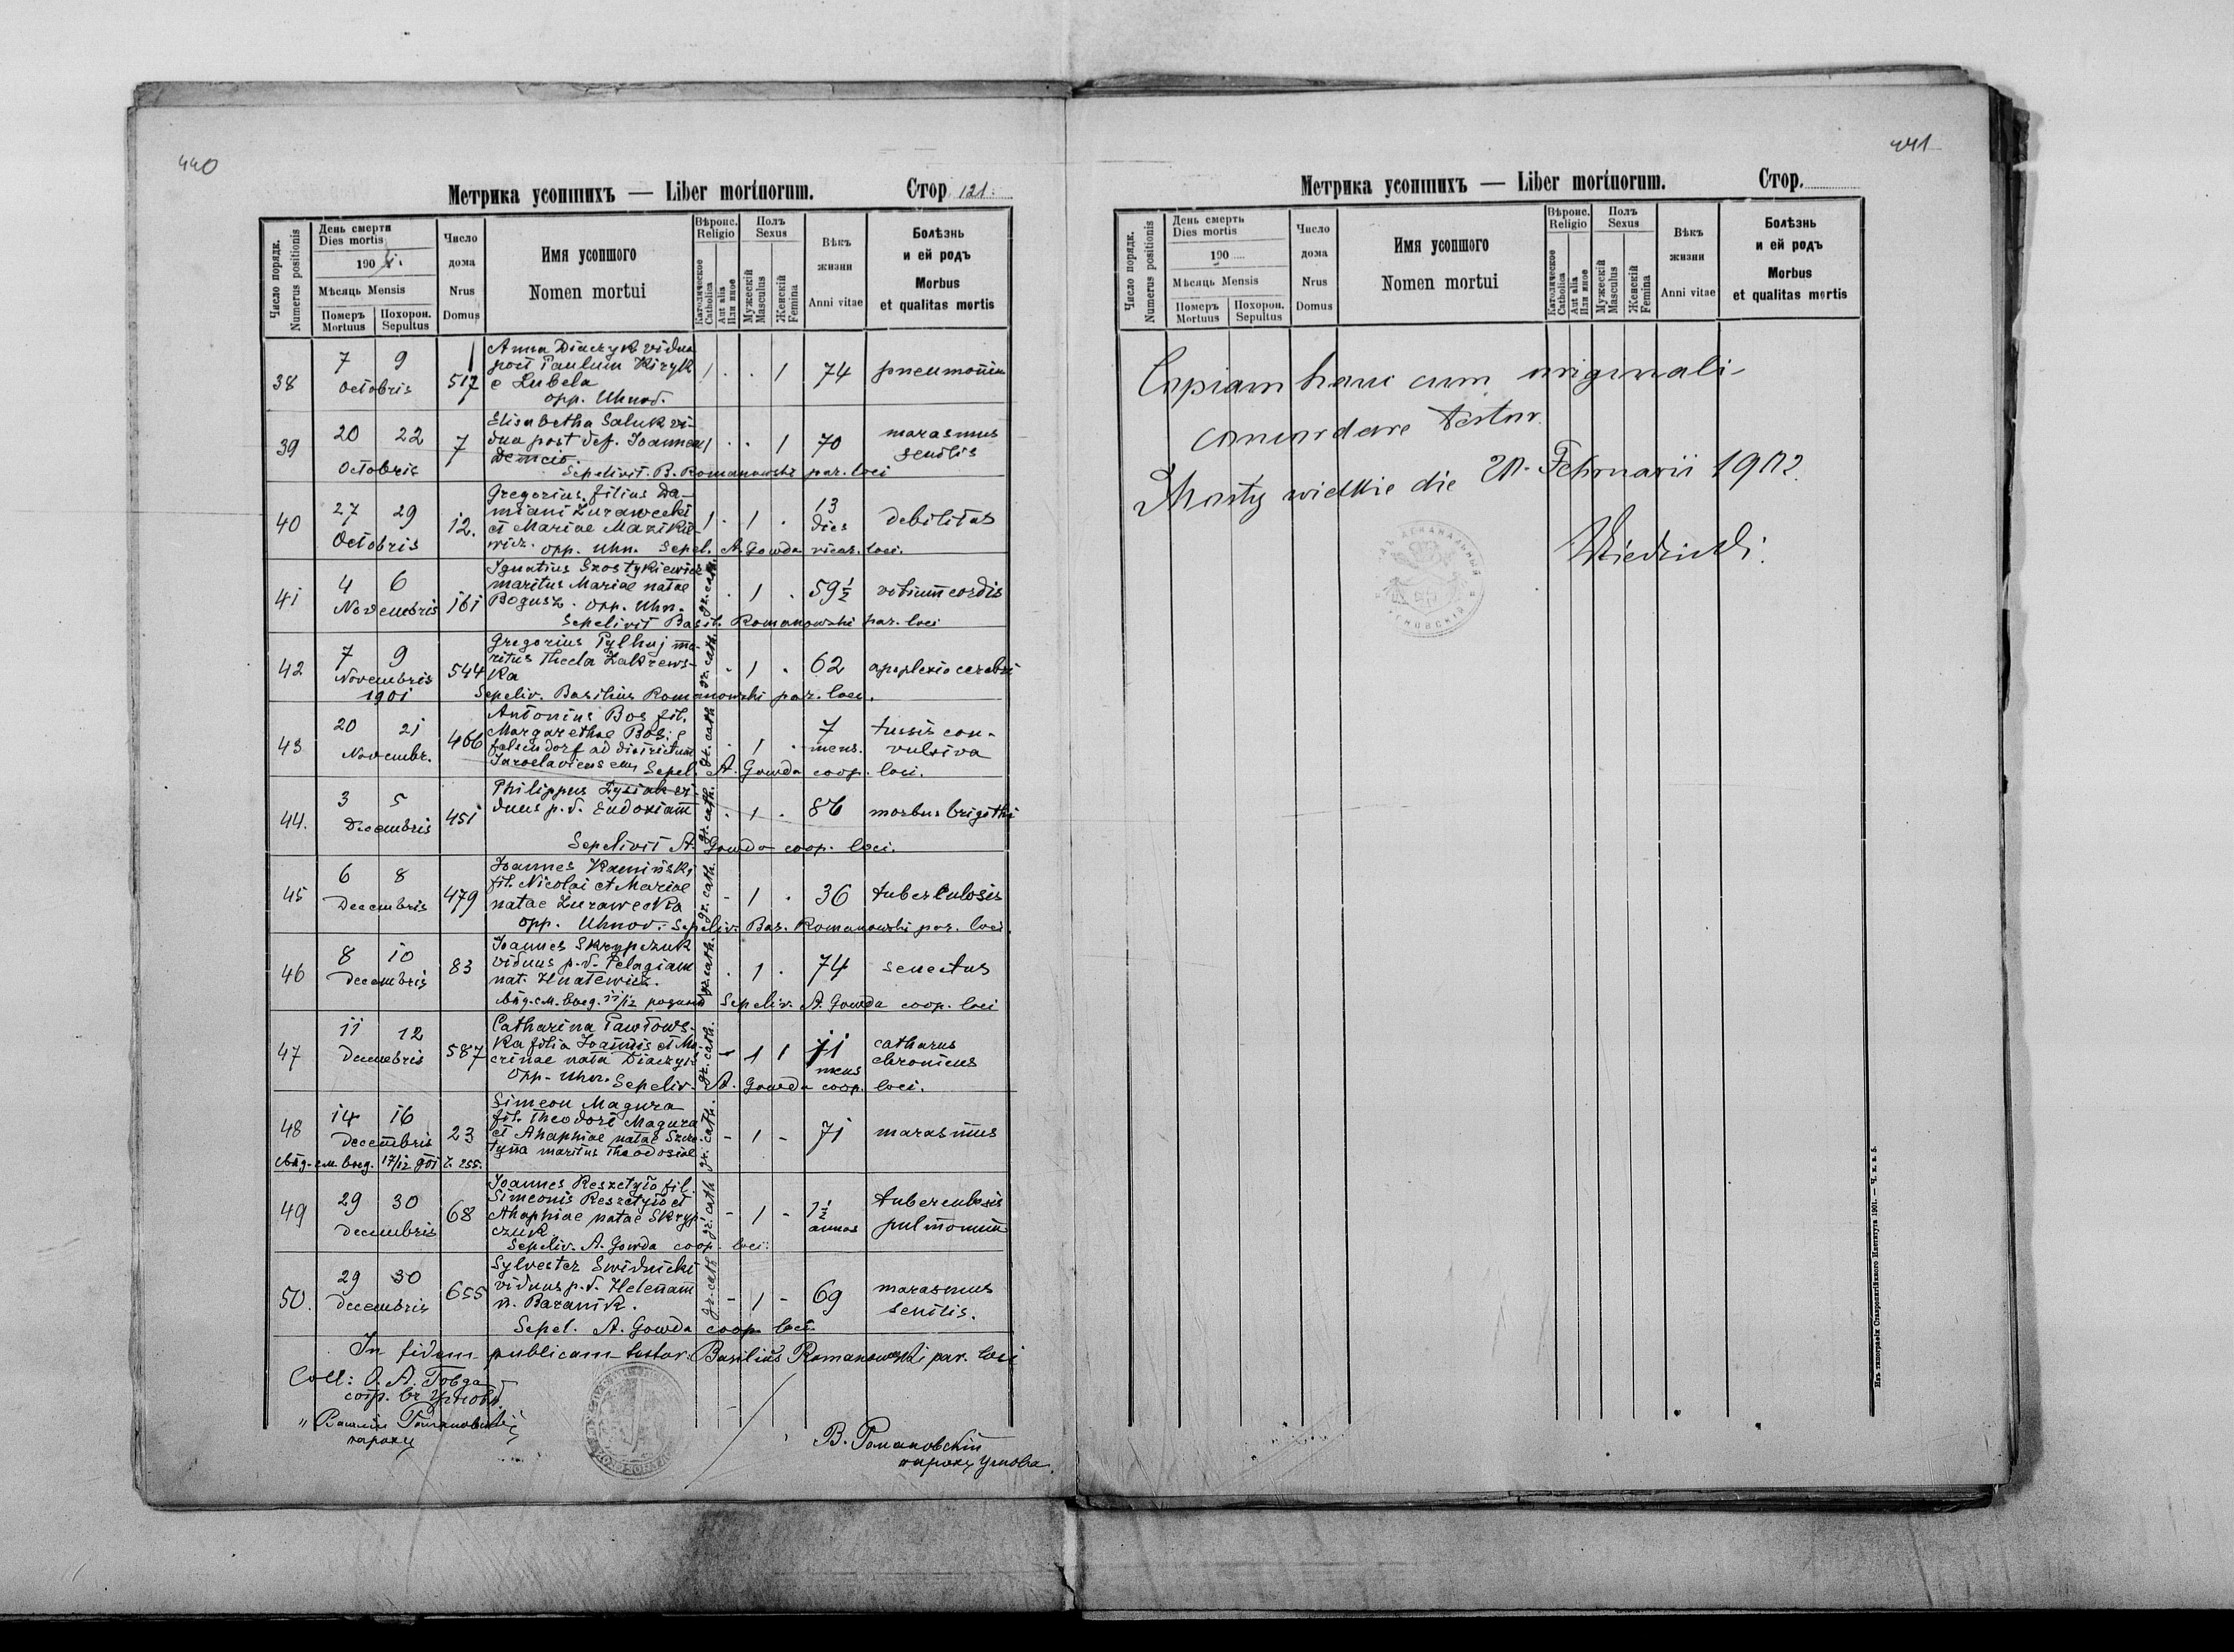 440
Метрика усопшихъ — Liber mortuorum.
Стор. 121.
Число порядк. Numerus positionis
День смерти Dies mortis
1901.
Мѣсяць Mensis
Померъ Mortuus
Похорон. Sepultus
Число дома Nrus Domus
Имя усопшого Nomen mortui
Вѣроис. Religio
Католическое Catholica
Aut alia Или иное
Полъ Sexus
Мужескій Masculus
Женскій Femina
Вѣкъ жизни Anni vitae
Болѣзнь и ей родъ Morbus et qualitas mortis
38 7 9 Octobris 517 1 . . 1 74 pneumonia
Anna Diaczyk vidua
post Paulum Kizyk
e Lubela
opp. Uhnov.
39 20 22 Octobris 7 1 . . 1 70 marasmus senilis
Elisabetha Saluk vi-
dua post def. Joannem
Demcio.
Sepelivit. B. Romanowski par. loci
40 27 29 Octobris 12. 1 . 1 . 13 dies debilitas
Gregorius filius Da-
miani Żurawecki
et Mariae Mazikie-
wicz. opp. Uhn. Sepel. A. Gowda vicar. loci.
41 4 6 Novembris 161 gr. cath. . 1 . 59 1/2 vitium cordis
Ignatius Szostykiewicz
maritus Mariae natae
Bogusz. opp. Uhn.
Sepelivit Basil. Romanowski par. loci
42 7 9 Novembris 1901 544 gr. cath. - 1 . 62 apoplexio cerebri
Gregorius Pylhuj ma-
ritus Thecla Zakrews-
ka
Sepeliv. Basilius Romanowski par. loci.
43 20 21 Novembr. 466 gr. cath . 1 . 7 mens. tussis con-
vulsiva
Antonius Bos fil.
Margarethae Bos; e
felsendorf ad districtum
Jaroslaviensem Sepel. A. Gowda coop. loci.
44. 3 5 Decembris 451 gr. cath. . 1 . 86 morbus brigthi
Philippus Łysiak vi-
duus p. d. Eudoxiam
Sepelivit A. Gowda coop. loci.
45 6 8 Decembris 479 gr. cath. - 1 . 36 tuberculosis
Joannes Kamiński
fil. Nicolai et Mariae
natae Żurawecka
opp. Uhnov. Sepeliv. Bas. Romanowski par. loci.
46 8 10 Decembris 83 gr. cath. . 1 . 74 senectus
Joannes Skrypczuk
viduus p. d. Pelagiam
nat. Hnatewicz.
Sepeliv. A. Gowda coop. loci
47 11 12 Decembris 587 gr. cath. - 1 1 11 mens catharus
chronicus
Catharina Pawłows-
ka filia Joannis et Ma-
crinae nata Diaczyk
Opp. Uhn. Sepeliv. A. Gowda coop. loci.
48 14 16 Decembris 23 gr. cath. - 1 - 71 marasmus
Simeon Magura
fil. Theodori Magura
et Ahaphiae natae
maritus Theodosiae
17/12 901 L. 255.
49 29 30 Decembris 68 gr. cath - 1 - 1 1/2 annos tuberculosis
pulmonum
Joannes Reszetyło fil.
Simeonis Reszetyło et
Ahaphiae natae Skryp-
czuk
Sepeliv. A. Gowda coop. loci.
50. 29 30 Decembris 655 gr. cath - 1 - 69 marasmus
senilis.
Sylvester Swidnicki
viduus p. d. Helenam
n. Baranik.
Sepel. A. Gowda coop loci
In fidem publicam testor. Basilius Romanowski par. loci
Coll: О. А. Говда
сотр. въ Угновѣ
" Василій Романовскій
парохъ
В. Романовскій
парохъ Угнова.
441
Метрика усопшихъ — Liber mortuorum.
Стор.
Число порядк. Numerus positionis
День смерть Dies mortis
190
Мѣсяць Mensis
Померъ Mortuus
Похорон. Sepultus
Число дома Nrus Domus
Имя усопшого Nomen mortui
Вѣроис. Religio
Католическое Catholica
Aut alia Или иное
Полъ Sexus
Мужескій Masculus
Женскій Femina
Вѣкъ жизни Anni vitae
Болѣзнь и ей родъ Morbus et qualitas mortis
Copiam hanc cum originali
concordare testor.
Mosty wielkie die 20. Februarii 1902.
Изъ типографіи Ставропигійского Института 1901. — Ч. к. в. 5.